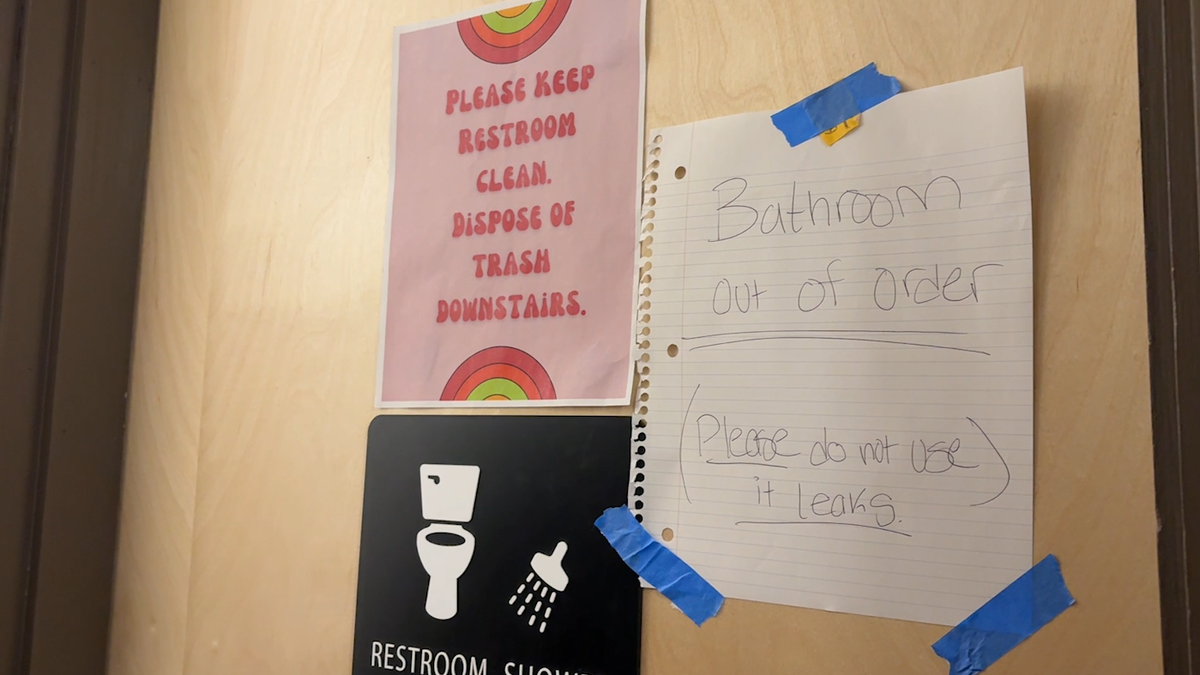 PLEASE KEEP
RESTROOM
CLEAN.
DISPOSE OF
TRASH
DOWNSTAIRS.
Bathroom
out of order
(Please do not use
it leaks.)
RESTROOM